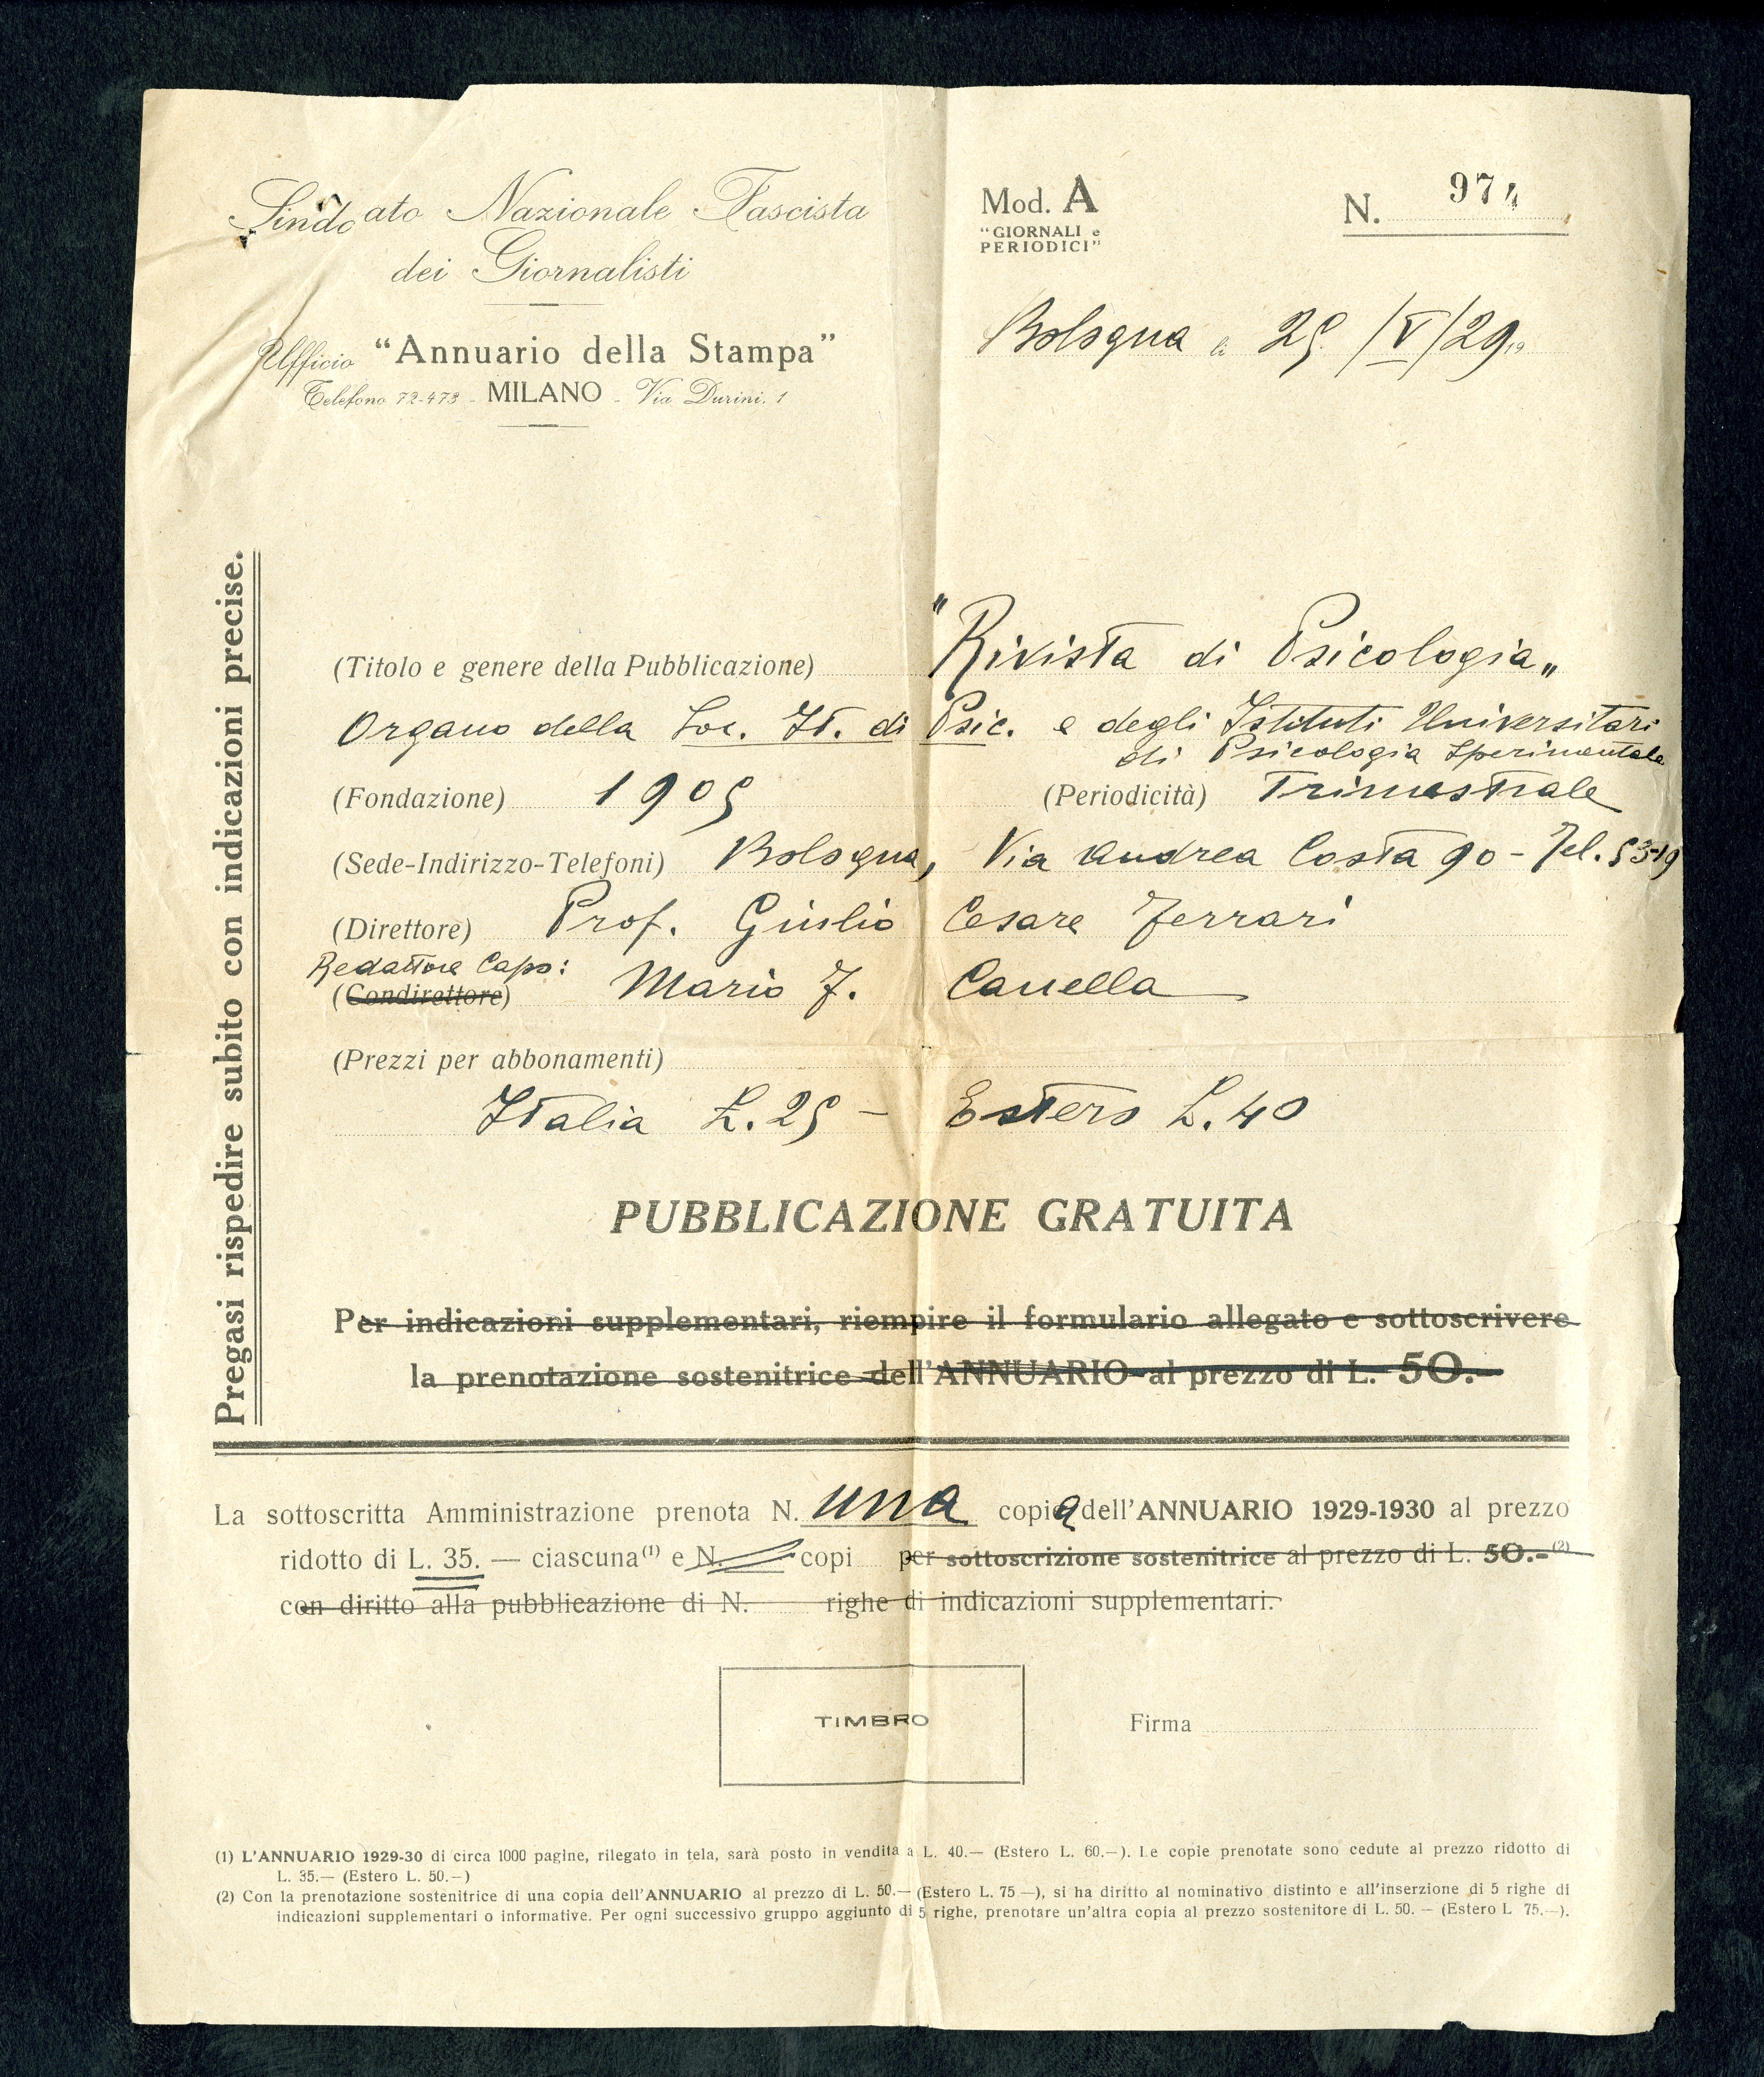 Sindacato Nazionale Fascista
dei Giornalisti
Ufficio "Annuario della Stampa"
Telefono 72-473 - MILANO - Via Durini, 1
Mod. A
"GIORNALI e
PERIODICI"
N. 974
Bologna li 25/V/29 19
Pregasi rispedire subito con indicazioni precise.
(Titolo e genere della Pubblicazione) "Rivista di Psicologia"
Organo della Soc. It. di Psic. e degli Istituti Universitari
di Psicologia Sperimentale
(Fondazione) 1905 (Periodicità) Trimestrale
(Sede-Indirizzo-Telefoni) Bologna, Via Andrea Costa 90 - Tel. 53-19
(Direttore) Prof. Giulio Cesare Ferrari
Redattore Capo:
(Condirettore) Mario F. Canella
(Prezzi per abbonamenti)
Italia L. 25 - Estero L. 40
PUBBLICAZIONE GRATUITA
Per indicazioni supplementari, riempire il formulario allegato e sottoscrivere
la prenotazione sostenitrice dell'ANNUARIO al prezzo di L. 50.-
La sottoscritta Amministrazione prenota N. una copia dell'ANNUARIO 1929-1930 al prezzo
ridotto di L. 35. — ciascuna(1) e N. copi per sottoscrizione sostenitrice al prezzo di L. 50.-(2)
con diritto alla pubblicazione di N. righe di indicazioni supplementari.
TIMBRO
Firma
(1) L'ANNUARIO 1929-30 di circa 1000 pagine, rilegato in tela, sarà posto in vendita a L. 40.— (Estero L. 60.—). Le copie prenotate sono cedute al prezzo ridotto di
L. 35.— (Estero L. 50.—)
(2) Con la prenotazione sostenitrice di una copia dell'ANNUARIO al prezzo di L. 50.— (Estero L. 75 —), si ha diritto al nominativo distinto e all'inserzione di 5 righe di
indicazioni supplementari o informative. Per ogni successivo gruppo aggiunto di 5 righe, prenotare un'altra copia al prezzo sostenitore di L. 50. — (Estero L 75.—).